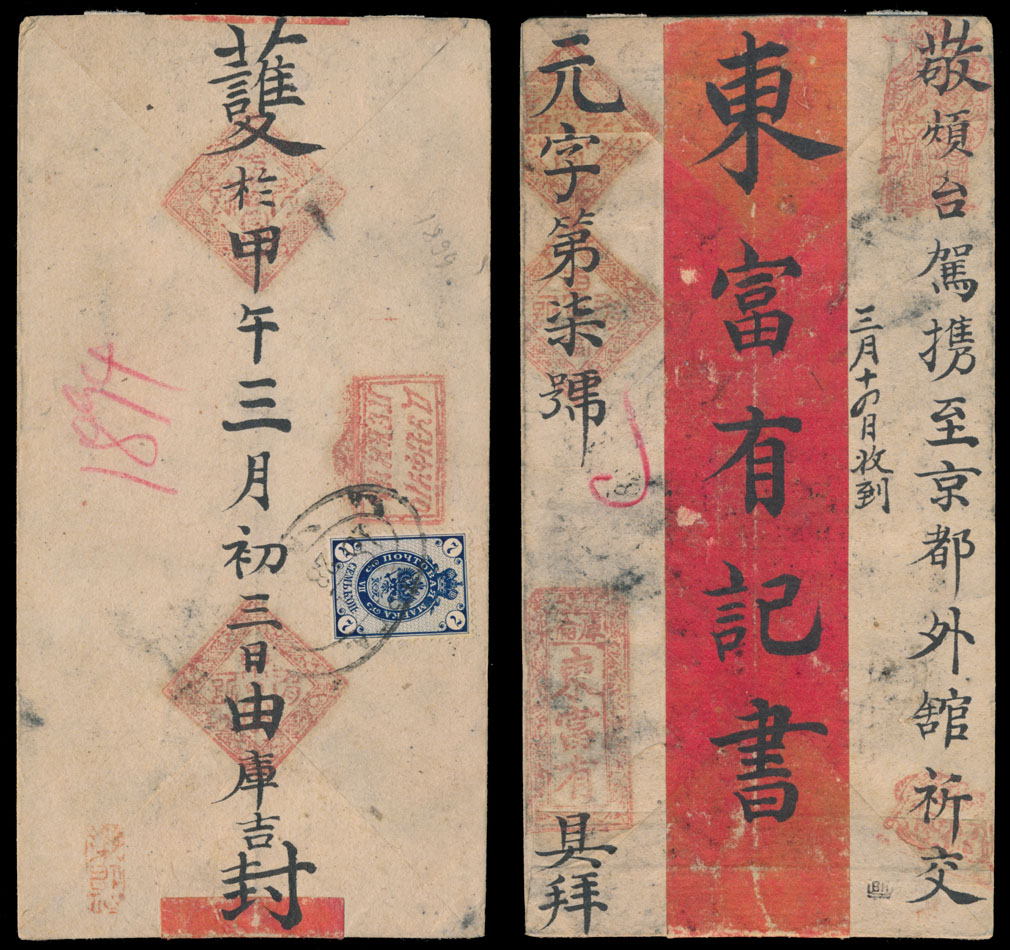 護於甲午三月初三日由庫吉封
1899
1894
ПОЧТОВАЯ МАРКА
СЕМЬ КОП.
VII
7
7
7
7
敬煩台駕携至京都外舘祈交
三月十四日收到
東富有記書
元字第柒號
東富有
具拜